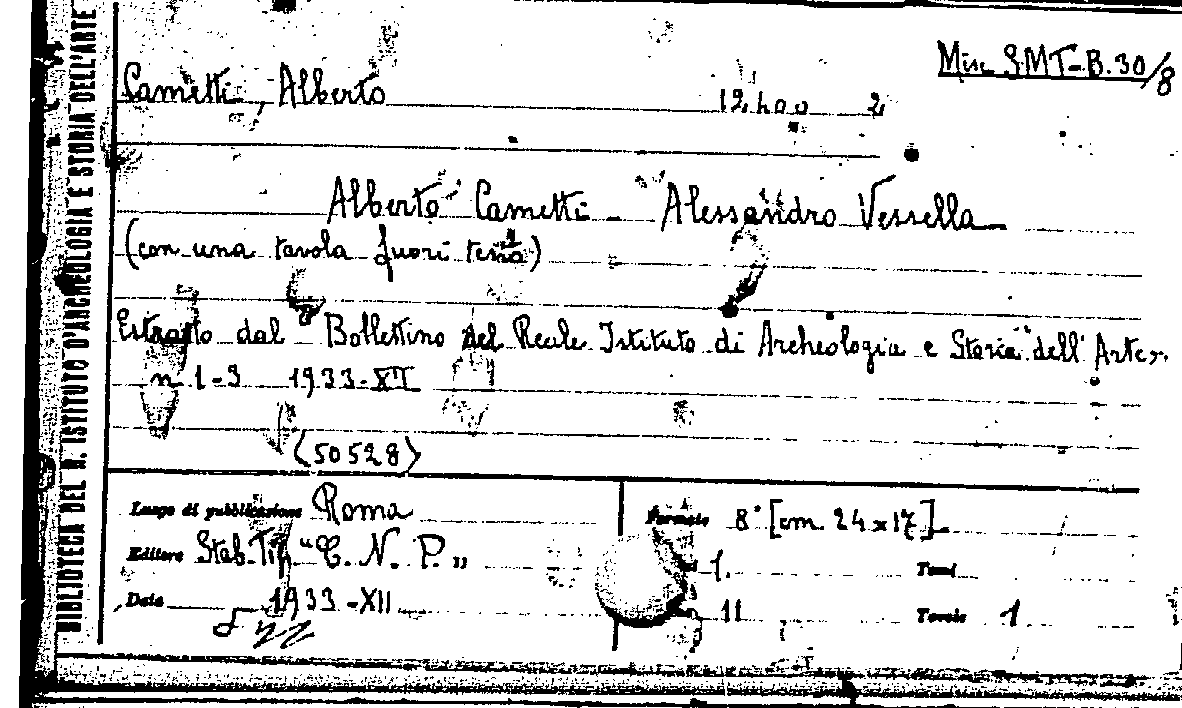 BIBLIOTECA DEL R. ISTITUTO D'ARCHEOLOGIA E STORIA DELL'ARTE
Misc SMT-B.30/8
Cametti, Alberto 12.400 2
Alberto Cametti - Alessandro Vessella
(con una tavola fuori testo)
Estratto dal "Bollettino del Reale Istituto di Archeologia e Storia" dell'Arte".
n 1-3 1933-XI
(50528)
Luogo di pubblicazione Roma
Formato 8° [cm. 24x17]
Editore Stab. Tip. "C. N. P."
1. Tomi
Data 1933-XII
11 Tavole 1